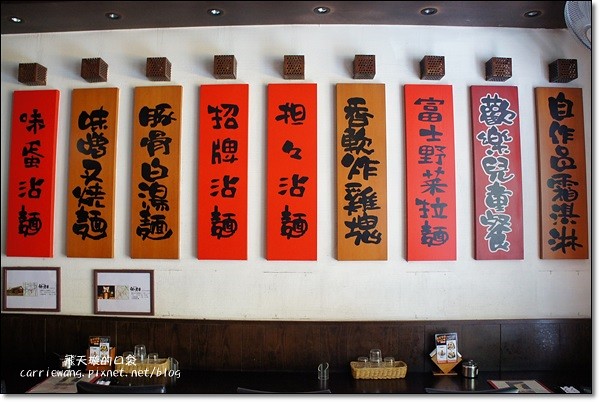 味蛋沾麵
味噌叉燒麵
豚骨白湯麵
招牌沾麵
担々沾麵
香軟炸雞塊
富士野菜拉麵
歡樂兒童餐
自作品霜淇淋
飛天璇的口袋
carriewang.pixnet.net/blog